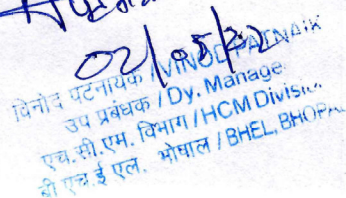 02/05/22
विनोद पटनायक / VINOD PATNAIK
उप प्रबंधक / Dy. Manage
एच.सी.एम. विभाग / HCM Divisi
बी एच.ई एल. भोपाल / BHEL, BHOPA